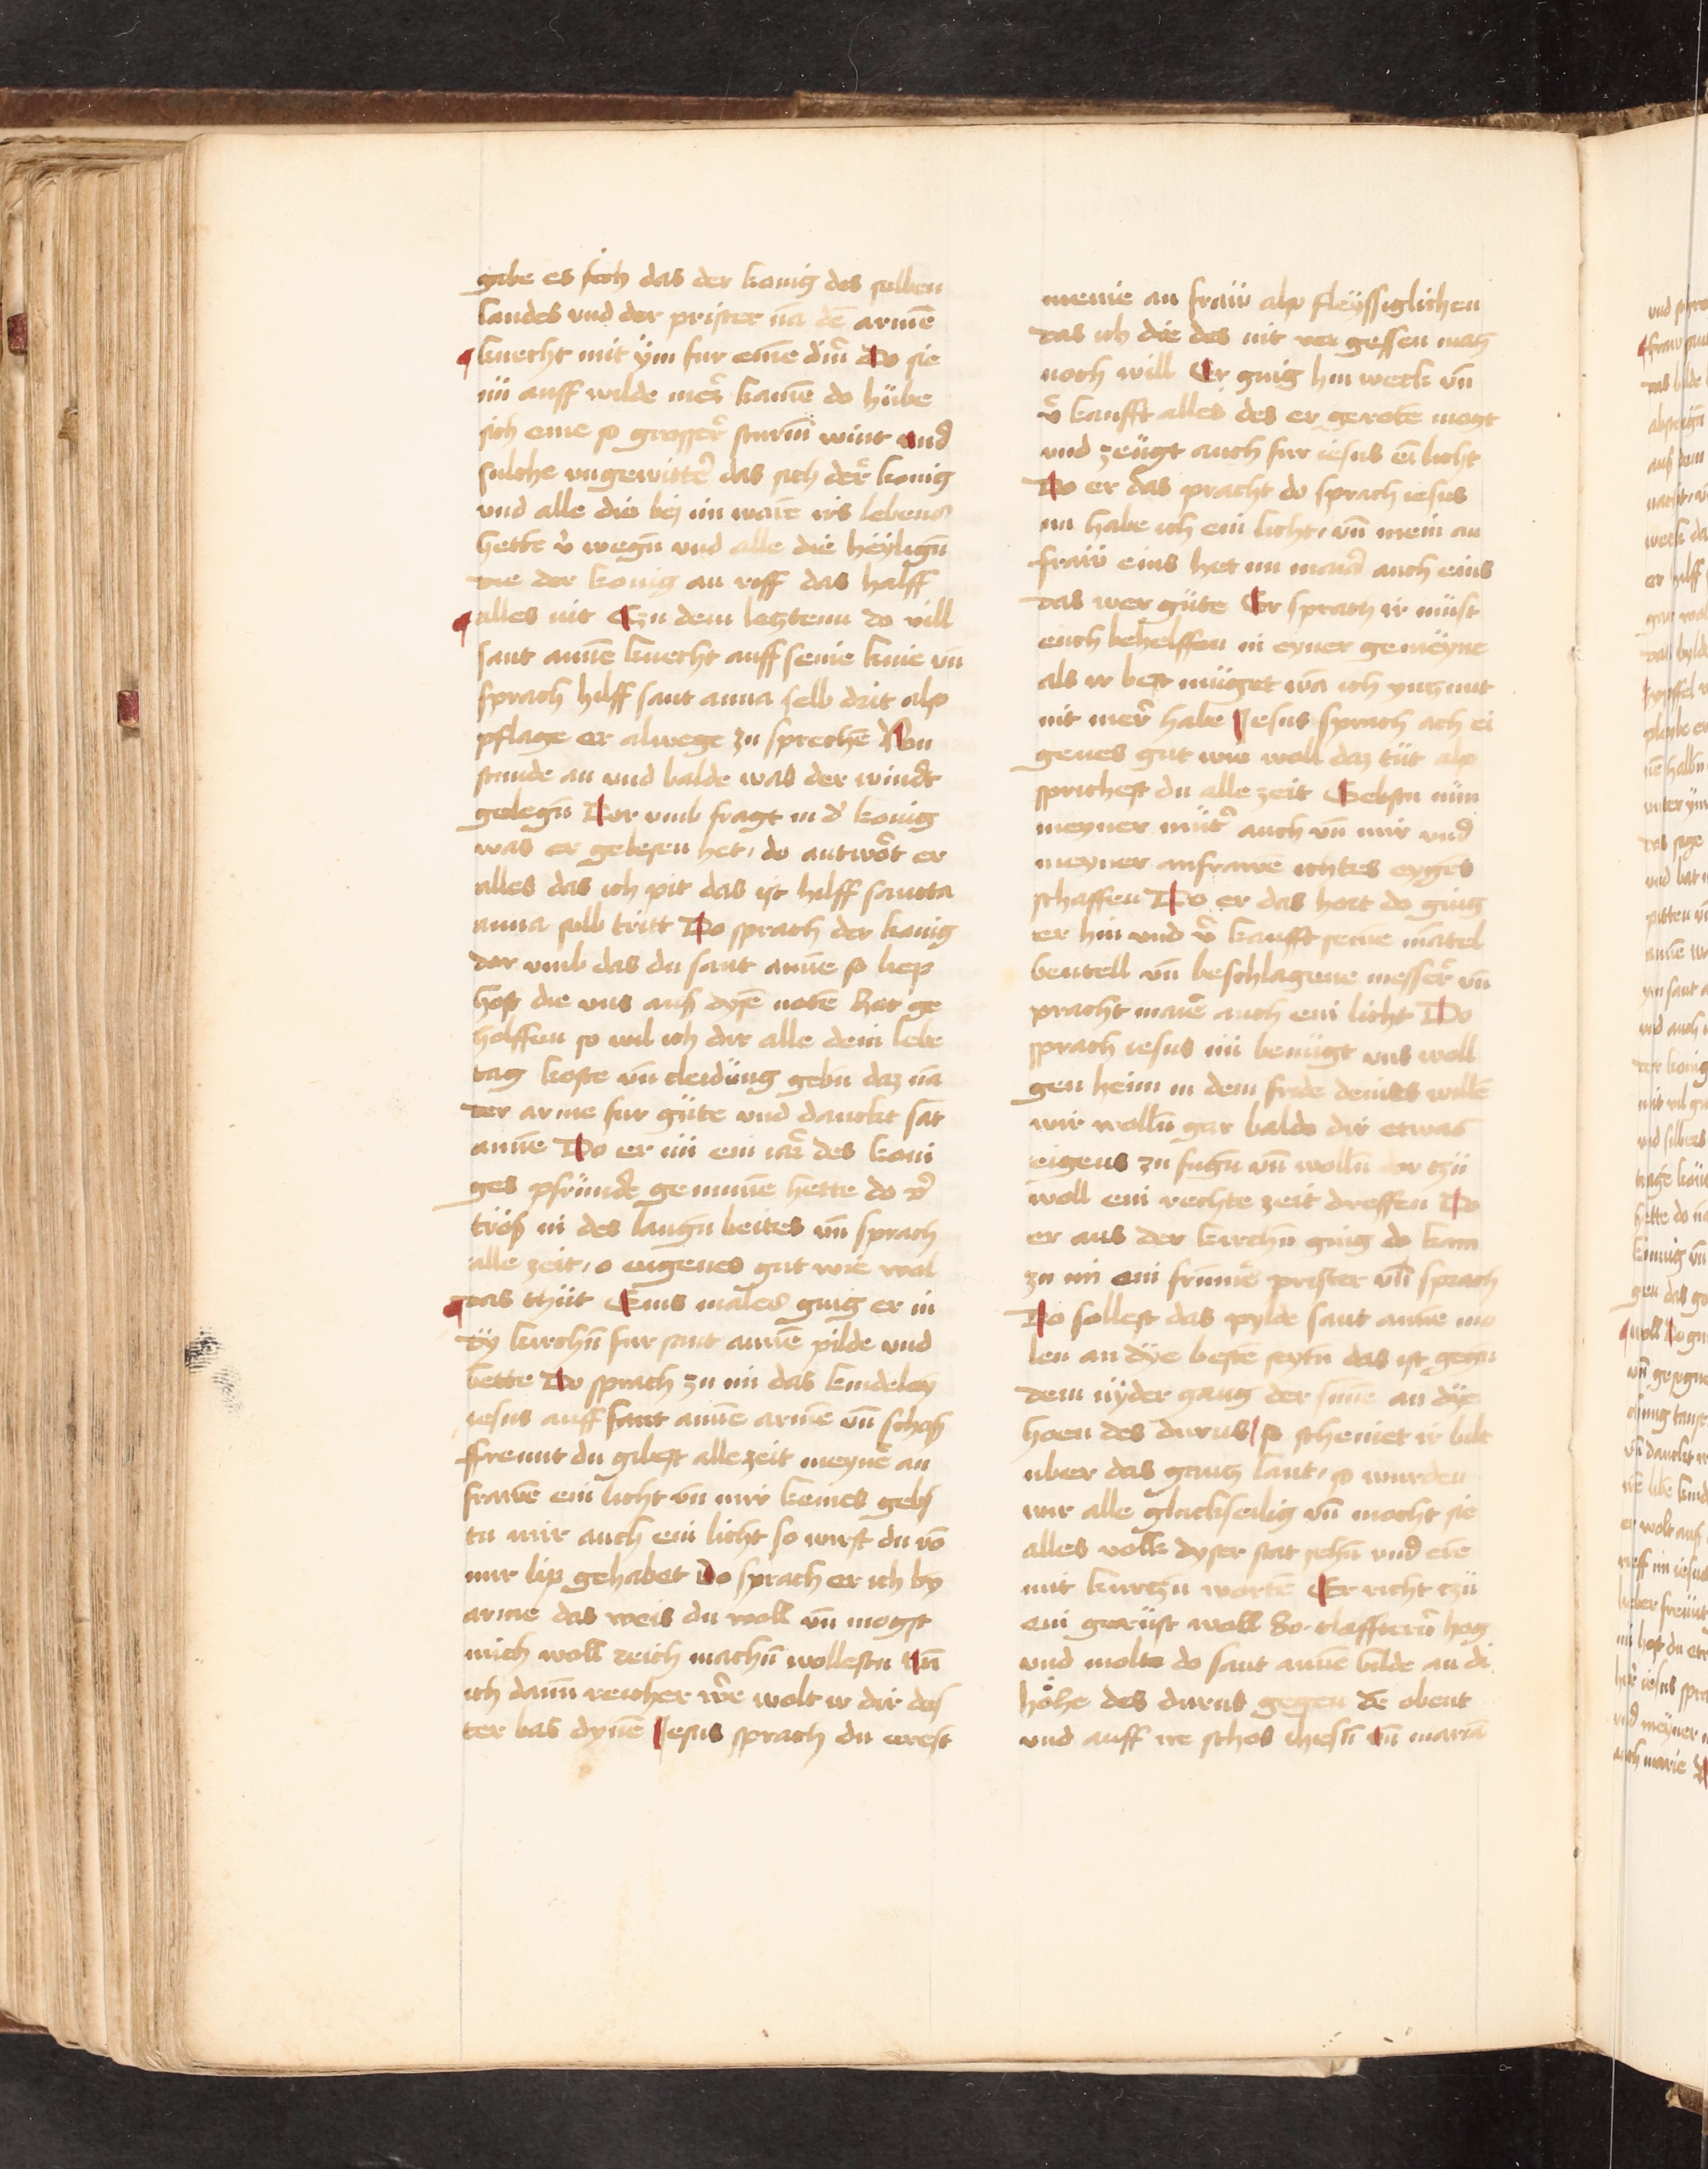 gebe es sich das der konig des selben
landes vnd der prister nā dē armē
knecht mit ÿm fur eine dīn̄ Do sie
nū auff wilde mer̄ kamē do hübe
sich eine so grosser̄ sturm wint vnd
sulche vngewitter̄ das sich der̄ konig
vnd alle die bej im warē irs lebens
hettē v̄wegn̄ vnd alle die heÿlign̄
die der konig an riff das halff
alles nit Czu dem letztenn do vill
sant annē knecht auff seine knie vn̄
sprach hilff sant anna selb drit alß
pflage er alwege zu sprechē Von
stunde an vnd balde was der windt
gelegn̄ Dor vmb fragt in d' konig
was er gelesen het, do antwort er
alles das ich pit das ist hilff sancta
anna selb tritt Do sprach der konig
dor vmb das du sant anne so liep
host die vns auß dysē notē hat ge
holffen so wil ich dir alle dein lebe
tag koste vn̄ cleidüng gebn̄ daz nā
der arme fur güte vnd danckt sāt
annē Do er nū ein iar̄ des koni
ges pfründe genumē hette do v'
trōß in des langn̄ beites vn̄ sprach
alle zeit, o eigenes gut wie wol
das thüt Eins males ging er in
dÿ kirchn̄ fur sant annē pilde vnd
bette Do sprach zu im das kindeley
iesus auff sant annē armē vn̄ schoß
ffreunt du gibest alle zeit meynē an
frawē ein licht vn̄ mir keines gebs
tu mir auch ein licht so wirst du vō
mir lip gehabet Do sprach er ich by
arme das weis du woll vn̄ mogst
mich woll reich machn̄ wollestu vn̄
ich dann reicher wer̄ wolt ir dir des
ter bas dynē Jesus sprach du erest
meine an fraw alß fleÿssiglichen
das ich die des nit ver gessen mag
noch will Er ging hin weck vn̄
v̄kaufft alles des er gerotē mogt
vnd zeügt auch fur iesus ein licht
Do er das pracht do sprach iesus
nu habe ich ein licht, vn̄ mein an
fraw eins het nu maria auch eins
das wer güte Er sprach ir müst
euch behelffen in eyner gemeÿne
als ir best müget wā ich ytzunt
nit mer̄ habe Jesus sprach ach ei
genes gut wie woll daz tüt alß
sprichest du alle zeit Gebstu nün
meyner müt' auch vn̄ mir vnd
meyner anfrawē ichtes eygēs
schaffen Do er das hort do ging
er hin vnd v̄kaufft seinē mātel
beutell vn̄ beschlagene messer̄ vn̄
pracht mariē auch ein licht Do
sprach iesus nū benügt vns woll
gen heim in dem fride deines willē
wir wolln̄ gar balde dir etwas
eigens zu fugn̄ vn̄ wolln̄ dor tzü
woll ein rechte zeit dreffen Do
er aus der kirchn̄ ging do kam
zu im ein frümer̄ prister vn̄ sprach
Do sollest das pylde sant annē mo
len an dÿe bestē seytn̄ das ist gegn
dem nÿder gang der sunē an dÿe
hoen des durns so scheinet ir bilt
uber das gantz lant, so wurden
wir alle gluckseilig vn̄ mocht sie
alles volk dyser stat sehn̄ vnd erē
mit kurtzn̄ wortē Er richt tzü
ein gerüst woll 80 claffterr̄ hog
vnd molte do sant annē bilde an di
höhe des durns gegen dē obent
vnd auff ire schos ihesū vn̄ mariā